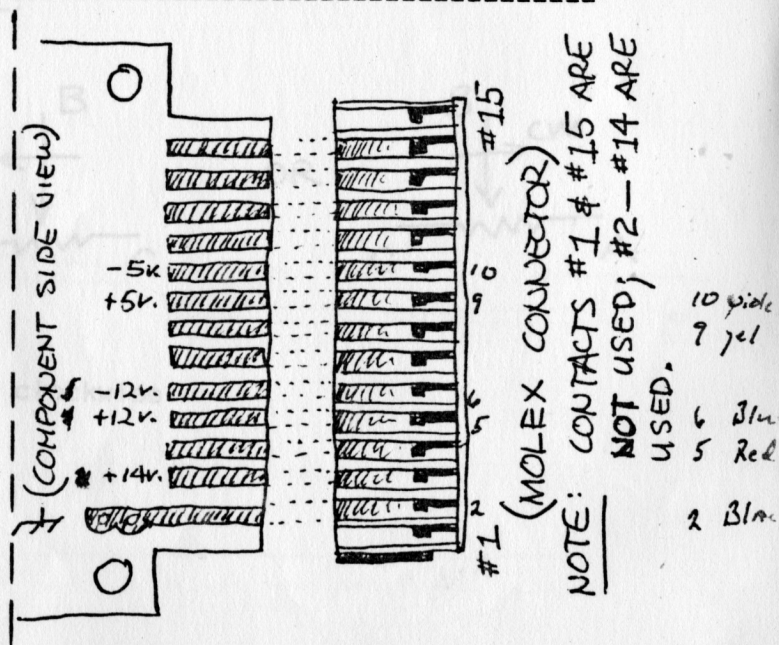 (COMPONENT SIDE VIEW)
-5v.
+5v.
-12v.
+12v.
+14v.
#15
10
9
6
5
2
#1
(MOLEX CONNECTOR)
NOTE: CONTACTS #1 & #15 ARE
NOT USED; #2-#14 ARE
USED.
10
9 yel
6 Blu
5 Red
2
B
B